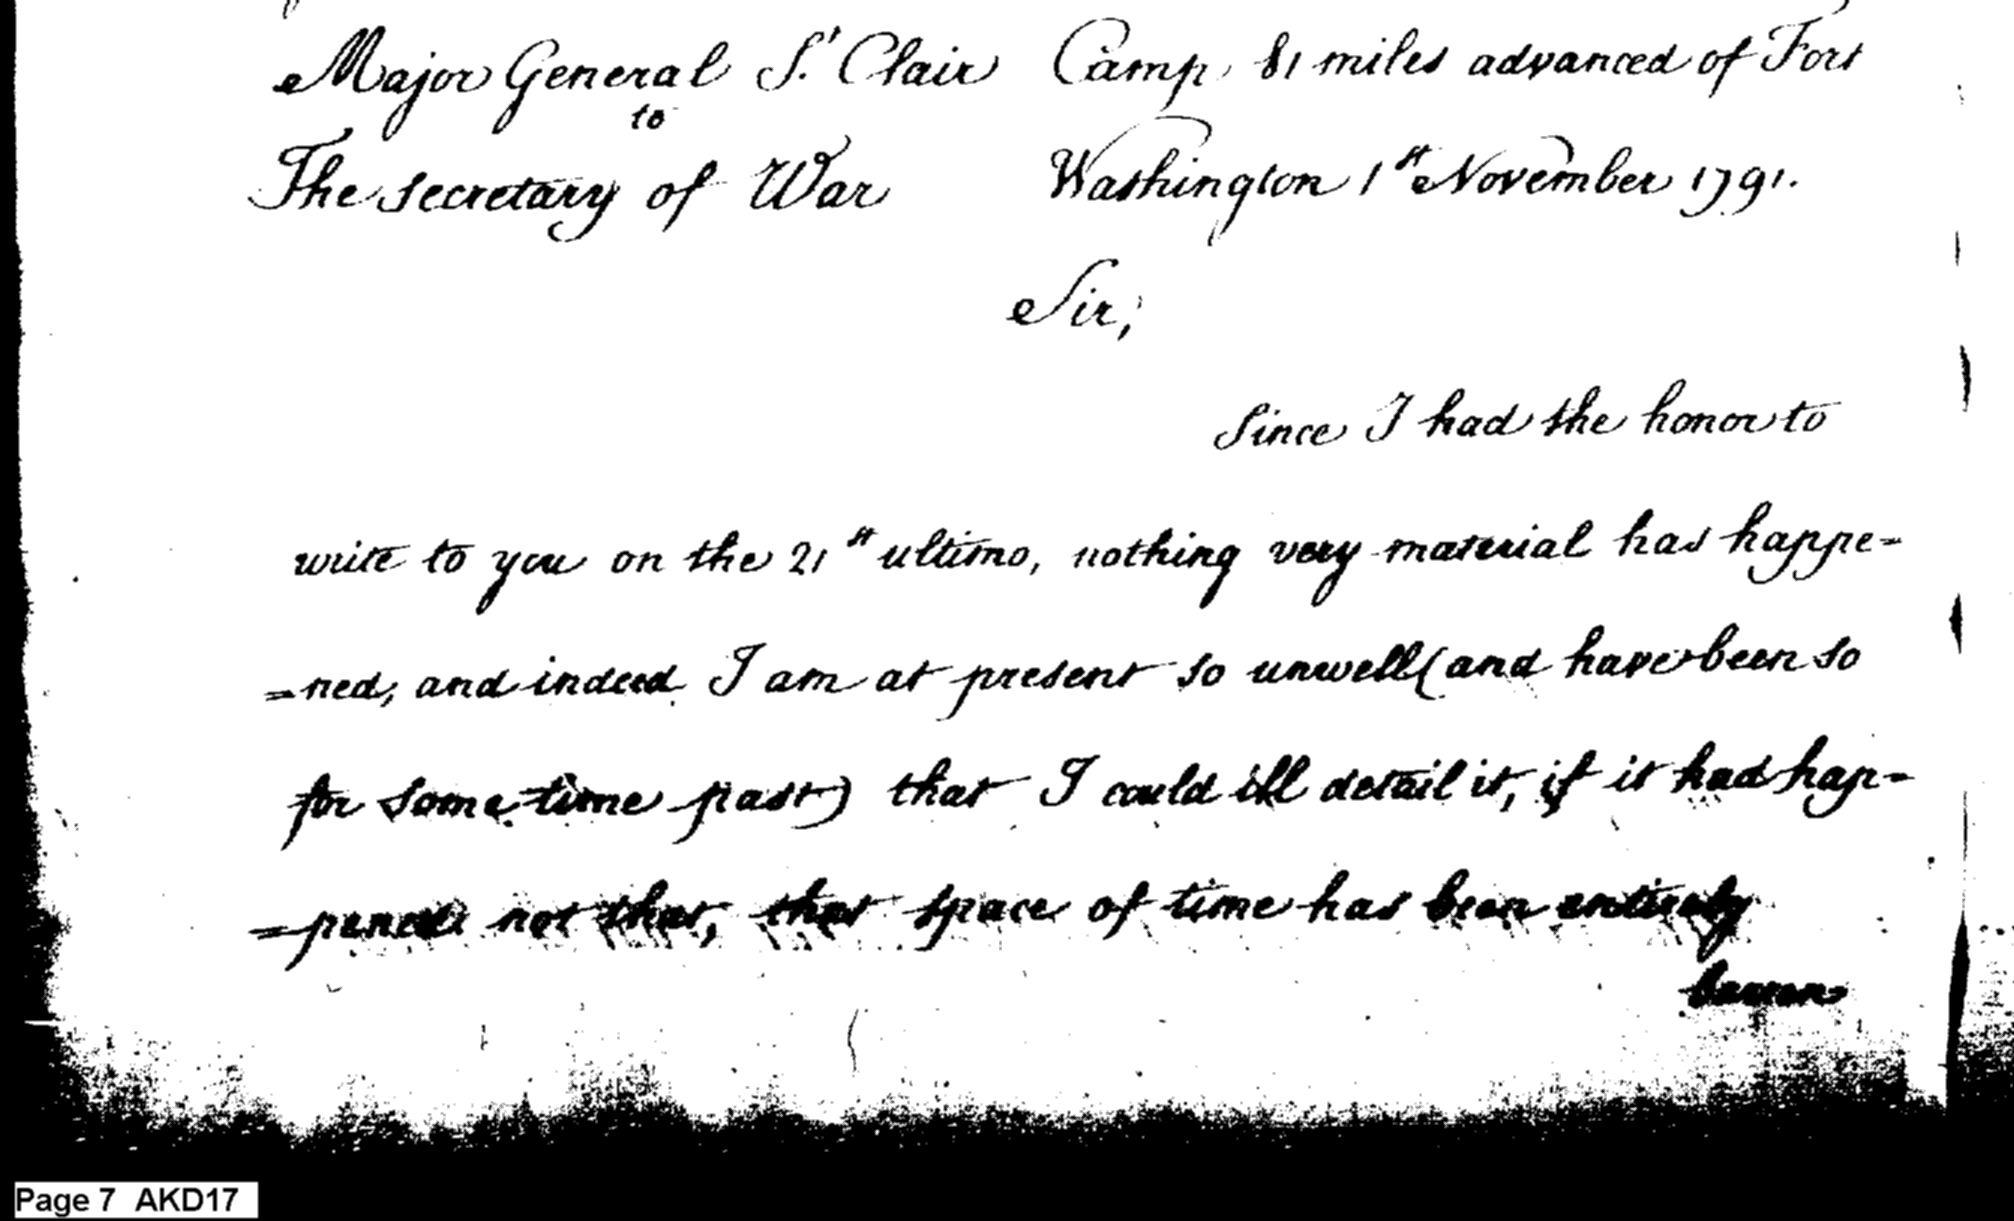 Major General St Clair Camp 81 miles advanced of Fort
to
The secretary of War Washington 1st November 1791.
Sir,
Since I had the honor to
write to you on the 21st ultimo, nothing very material has happe=
=ned, and indeed I am at present so unwell (and have been so
for some time past) that I could ill detail it, if it had hap=
=pened not that, that space of time has been entirely
barren
Page 7 AKD17